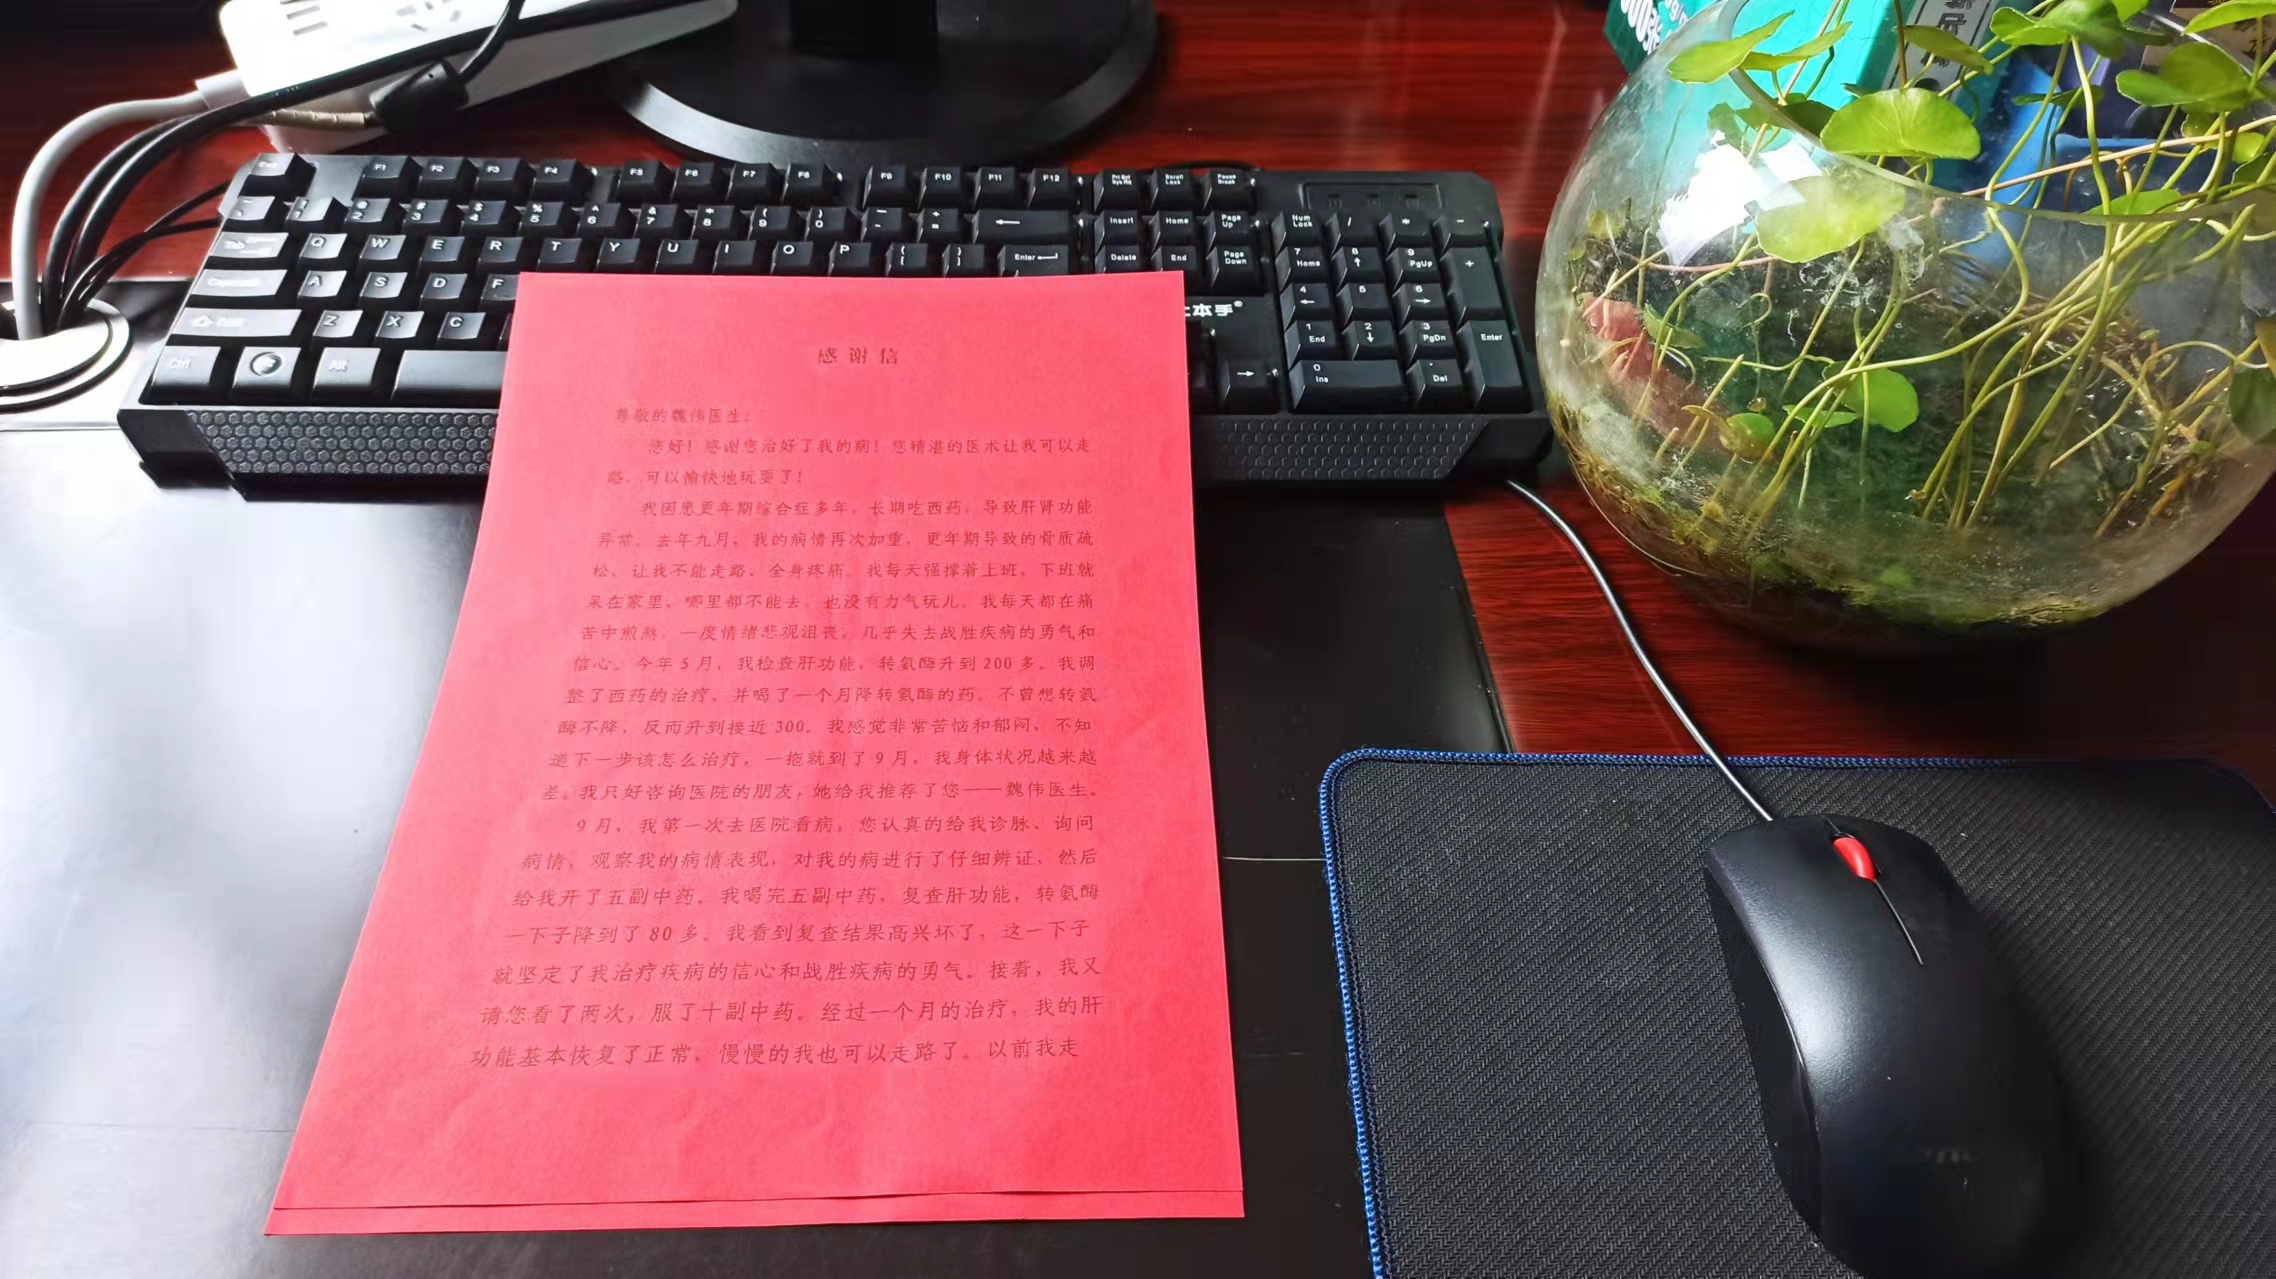 感谢信
尊敬的魏伟医生：
您好！感谢您治好了我的病！您精湛的医术让我可以走
路，可以愉快地玩耍了！
我因患更年期综合症多年，长期吃西药，导致肝肾功能
异常。去年九月，我的病情再次加重，更年期导致的骨质疏
松，让我不能走路，全身疼痛。我每天强撑着上班，下班就
呆在家里，哪里都不能去，也没有力气玩儿。我每天都在痛
苦中煎熬，一度情绪悲观沮丧，几乎失去战胜疾病的勇气和
信心。今年5月，我检查肝功能，转氨酶升到200多。我调
整了西药的治疗，并喝了一个月降转氨酶的药。不曾想转氨
酶不降，反而升到接近300。我感觉非常苦恼和郁闷，不知
道下一步该怎么治疗，一拖就到了9月，我身体状况越来越
差。我只好咨询医院的朋友，她给我推荐了您——魏伟医生。
9月，我第一次去医院看病，您认真的给我诊脉、询问
病情，观察我的病情表现，对我的病进行了仔细辨证，然后
给我开了五副中药。我喝完五副中药，复查肝功能，转氨酶
一下子降到了80多。我看到复查结果高兴坏了，这一下子
就坚定了我治疗疾病的信心和战胜疾病的勇气。接着，我又
请您看了两次，服了十副中药。经过一个月的治疗，我的肝
功能基本恢复了正常，慢慢的我也可以走路了。以前我走
F1 F2 F3 F4 F5 F6 F7 F8 F9 F10 F11 F12 Prt Scr SysRq Scroll Lock Pause Break
@ 2 # 3 $ 4 % 5 ^ 6 & 7 * 8 ( 9 ) 0 - + = ← Insert Home Page Up Num Lock / * -
Tab Q W E R T Y U I O P { [ } ] Enter Delete End Page Down 7 Home 8 ↑ 9 PgUp +
A S D F 4 ← 5 6 →
Z X C 本手® 1 End 2 ↓ 3 PgDn Enter
Ctrl Alt → 0 Ins . Del